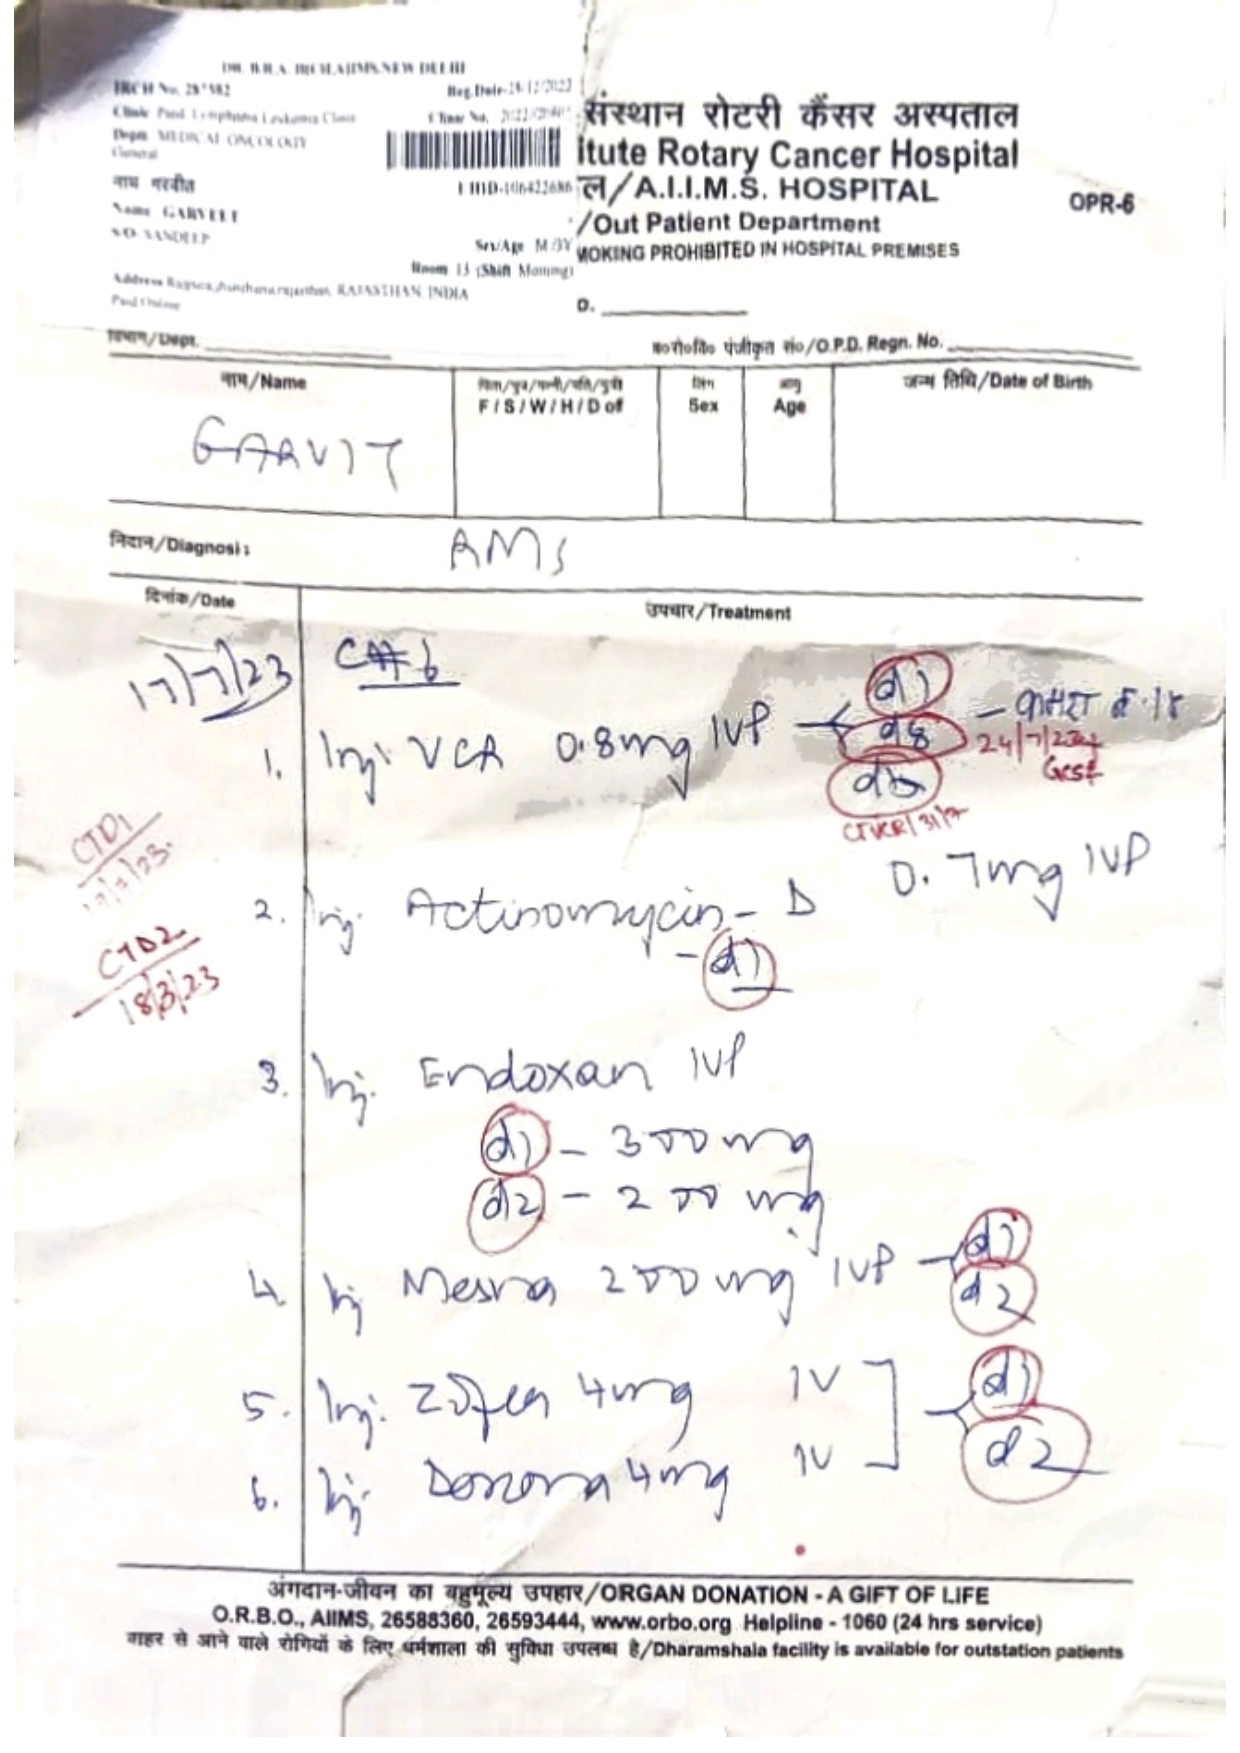 DR. B.R.A. IRCH,AIIMS,NEW DELHI
IRCH No. 287582
Reg.Date-28/12/2022
Clinic Paed. Lymphoma Leukemia Clinic
Clinic No.
Deptt MEDICAL ONCOLOGY
General
संस्थान रोटरी कैंसर अस्पताल
itute Rotary Cancer Hospital
UHID-106422686
ल/A.I.I.M.S. HOSPITAL
OPR-6
नाम गरवीत
Name GARVEET
S/O SANDEEP
/Out Patient Department
Sex/Age M/3Y
MOKING PROHIBITED IN HOSPITAL PREMISES
Room 13 (Shift Morning)
Address RAJASTHAN, INDIA
Paid Online
D.
विभाग/Dept.
ब०रो०वि० पंजीकृत सं०/O.P.D. Regn. No.
नाम/Name
पिता/पुत्र/पत्नी/पति/पुत्री
लिंग
आयु
जन्म तिथि/Date of Birth
F/S/W/H/D of
Sex
Age
GARVIT
निदान/Diagnosi:
RMS
दिनांक/Date
उपचार/Treatment
17/7/23
6
d1
1. Inj. VCR 0.8mg IVP
d8
24/7/23
Gcsf
CTVCR/31/7
CTD1
17/7/23
2. Inj. Actinomycin-D 0.7mg IVP
- d1
CTD2
18/3/23
3. Inj. Endoxan IVP
d1 - 300mg
d2 - 200mg
4. Inj Mesna 200mg IVP
d1
d2
5. Inj. Zofer 4mg IV
d1
6. Inj. 4mg IV
d2
अंगदान-जीवन का बहुमूल्य उपहार/ORGAN DONATION - A GIFT OF LIFE
O.R.B.O., AIIMS, 26588360, 26593444, www.orbo.org Helpline - 1060 (24 hrs service)
बाहर से आने वाले रोगियों के लिए धर्मशाला की सुविधा उपलब्ध है/Dharamshala facility is available for outstation patients